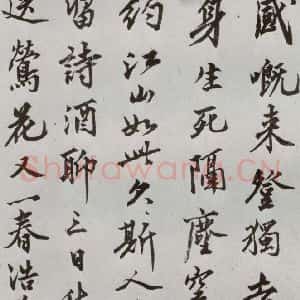 感嘅来登獨
身生死隔塵
約江山如此久斯人
留詩酒聊三日
送鶯花又一春浩
Shufawang.CN